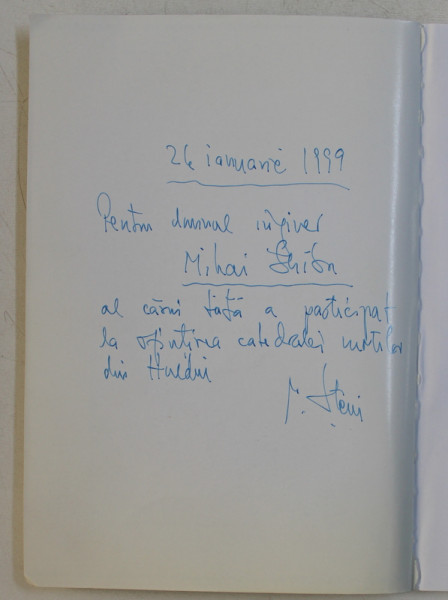 26 ianuarie 1999
Pentru domnul inginer
Mihai
al cărui tată a participat
la sfințirea catedralei moților
din Huedin